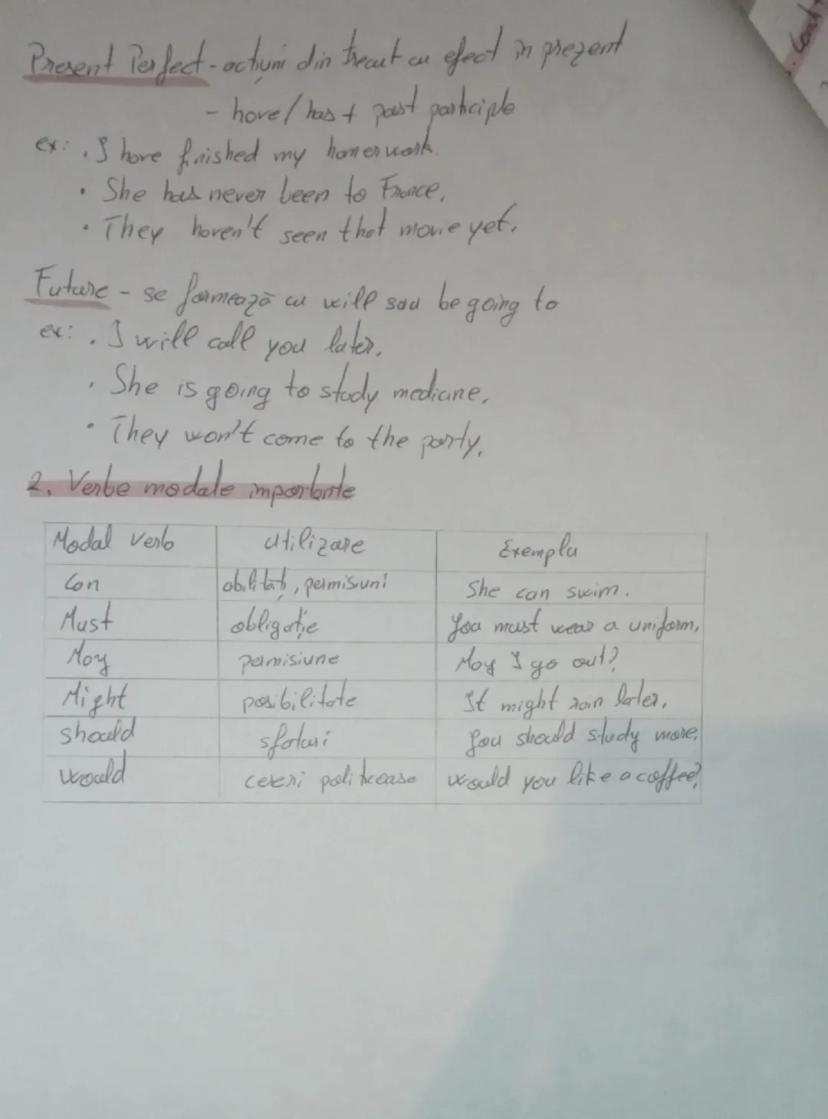 Present Perfect - acțiuni din trecut cu efect în prezent
- have/has + past participle
ex: . I have finished my homework.
• She has never been to France.
• They haven't seen that movie yet.
Future - se formează cu will sau be going to
ex: . I will call you later.
• She is going to study medicine.
• They won't come to the party.
2. Verbe modale importante
Modal verb Utilizare Exemplu
Can abilități, permisiuni She can swim.
Must obligație You must wear a uniform.
May permisiune May I go out?
Might posibilitate It might rain later.
Should sfaturi You should study more.
Would cereri politicoase Would you like a coffee?